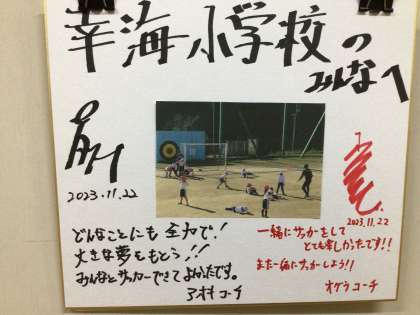 幸海小学校の
みんなへ
2023.11.22
2023.11.22
どんなことにも全力で!
大きな夢をもとう!!
みんなとサッカーできてよかったです。
コーチ
一緒にサッカーをして
とても楽しかったです!!
また一緒にサッカーしよう!!
オグラコーチ